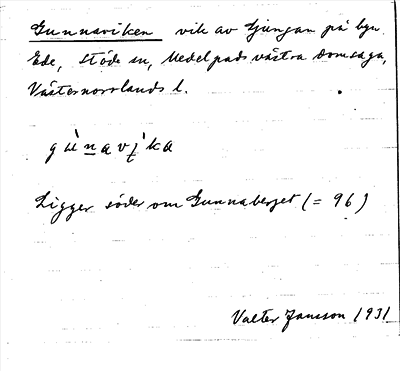 Gunnaviken vik av Ljungan på byn
Ede, Stöde sn, Medelpads västra domsaga,
Västernorrlands l.
gùnavíka
Ligger söder om Gunnaberget (= 96)
Valter Jansson 1931